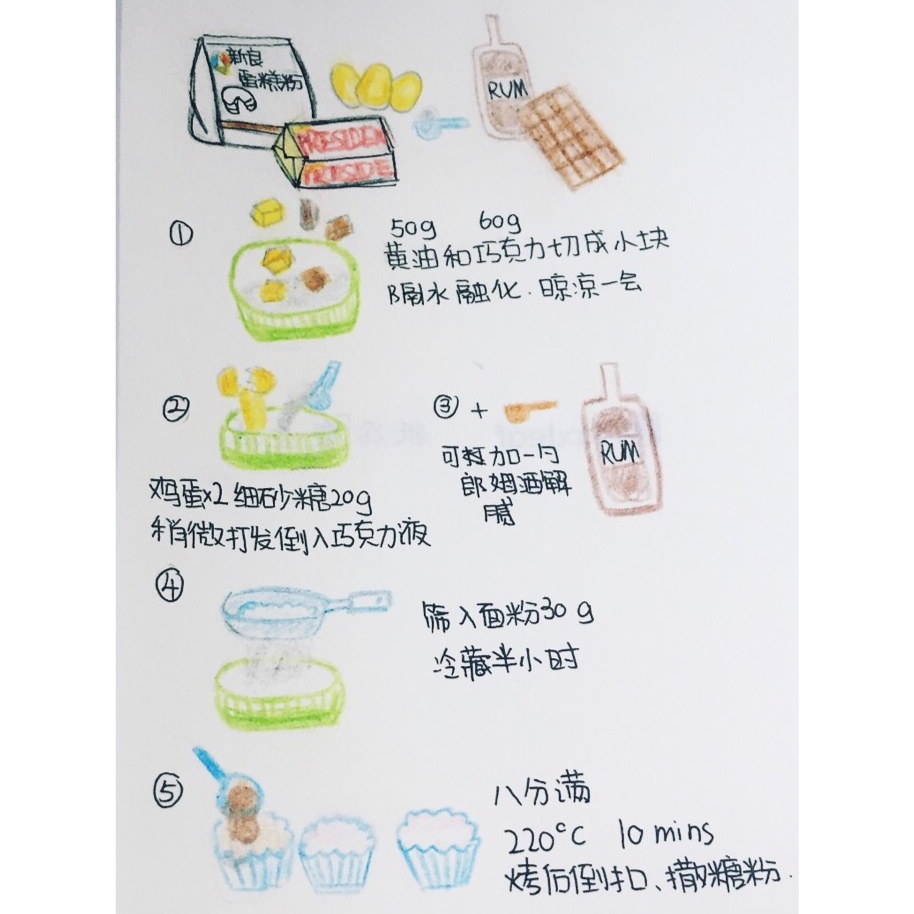 新良
蛋糕粉
PRESIDEN
PRESIDE
RUM
①
50g 60g
黄油和巧克力切成小块
隔水融化.晾凉一会
②
鸡蛋x2 细砂糖20g
稍微打发倒入巧克力液
③ +
可加一勺
郎姆酒解
腻
RUM
④
筛入面粉30g
冷藏半小时
⑤
八分满
220°C 10 mins
烤后倒扣、撒糖粉.